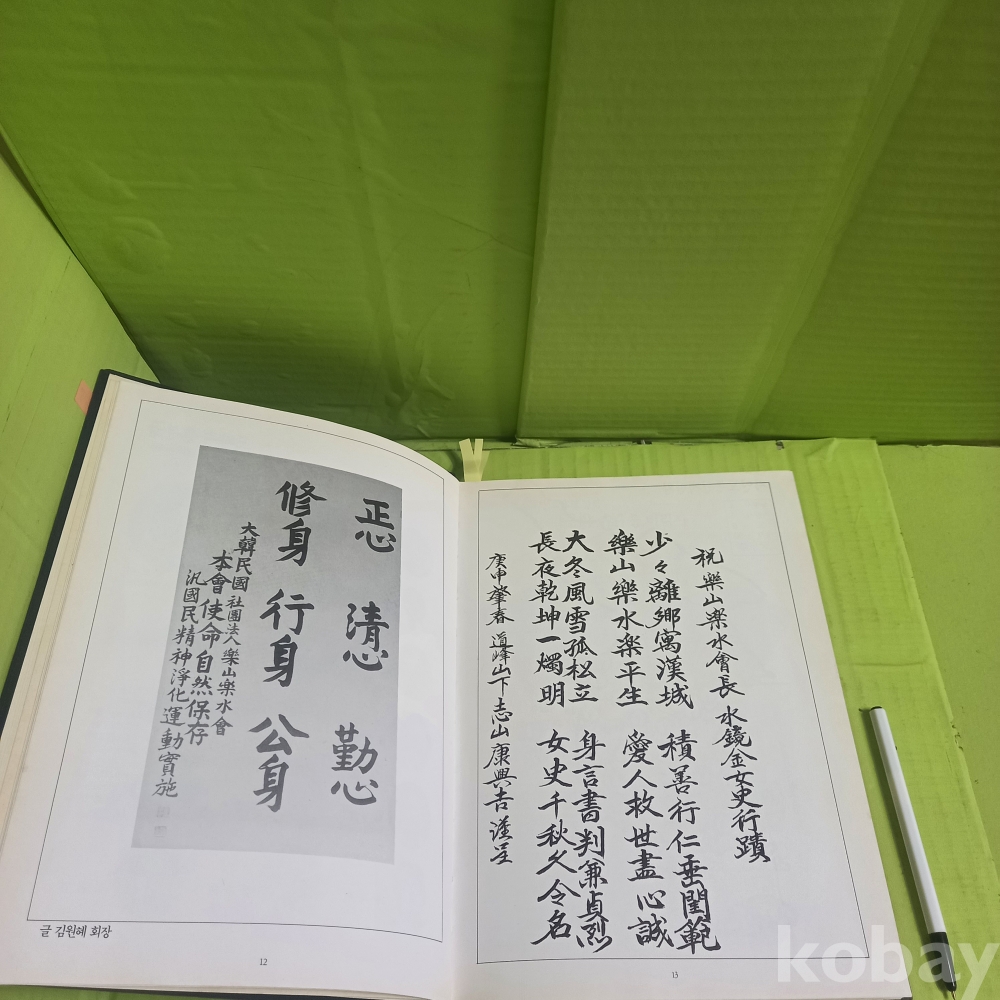 正心 清心 勤心
修身 行身 公身
大韓民國 社團法人 樂山樂水會
本會使命自然保存
汎國民精神淨化運動實施
글 김원혜 회장
12
祝 樂山樂水會長 水鏡金女史行蹟
少々離鄉寓漢城 積善行仁垂閨範
樂山樂水樂平生 愛人救世盡心誠
大冬風雪孤松立 身言書判兼貞烈
長夜乾坤一燭明 女史千秋久令名
庚申肇春 道峰山下志山康興吉謹呈
13
kobay